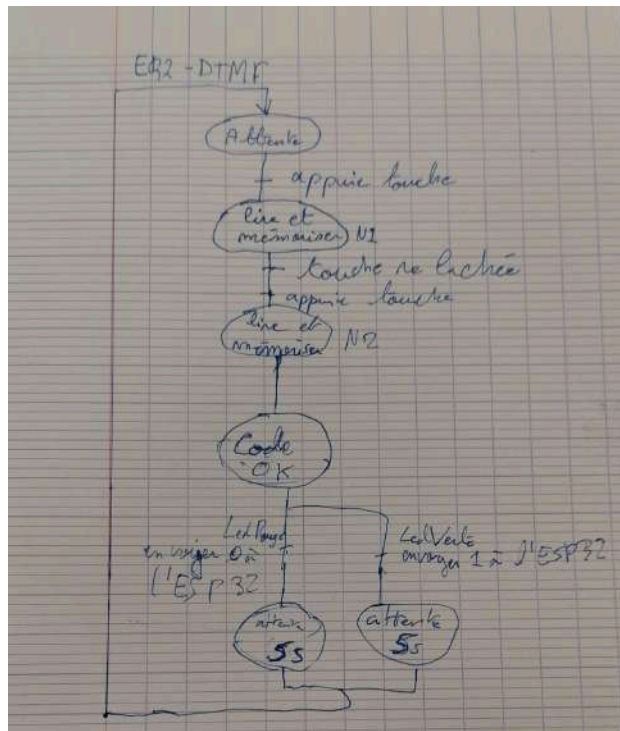 ER2 - DTMF
Attente
appuie touche
lire et
mémoriser N1
touche re lachée
appuie touche
lire et
mémoriser N2
Code
OK
Led Rouge
envoyer 0 à
l'ESP32
Led Verte
envoyer 1 à l'ESP32
attente
5s
attente
5s